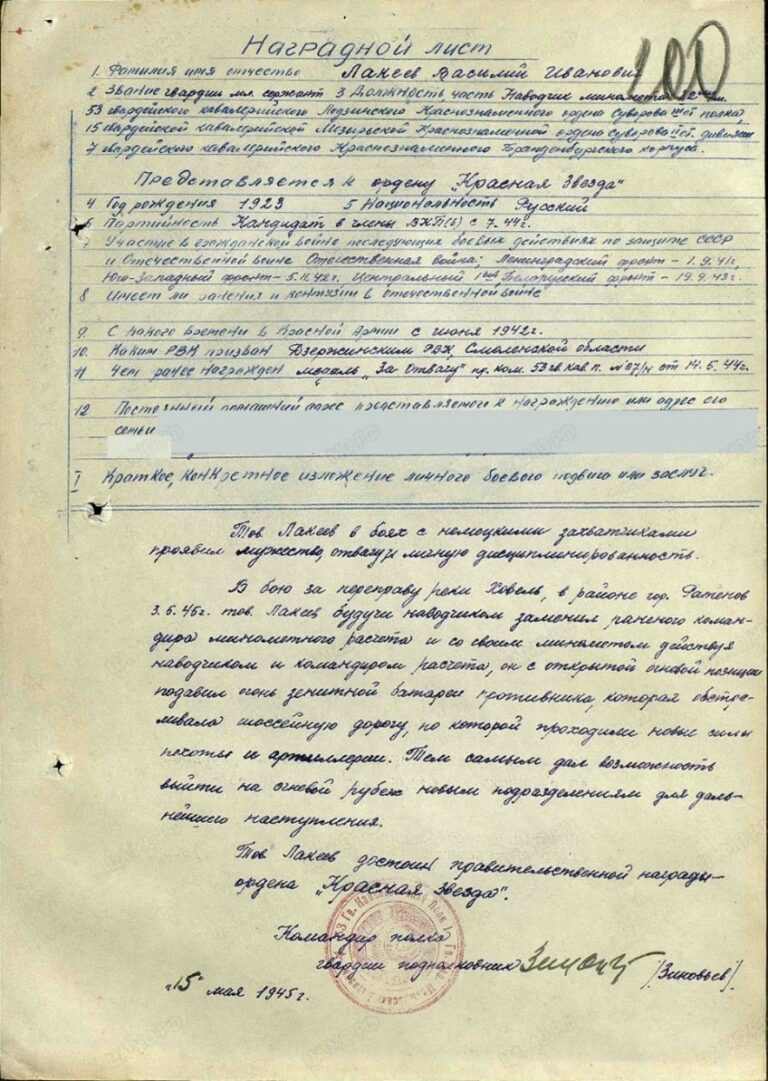 100
Наградной лист
1. Фамилия имя отчество Лакеев Василий Иванович
2 Звание гвардии мл. сержант 3 Должность, часть Наводчик миномета 82 мм.
53 гвардейского кавалерийского Лодзинского Краснознаменного ордена Суворова IIIст полка,
15 гвардейской кавалерийской Мозырьской Краснознаменной ордена Суворова IIст. дивизии
7 гвардейского кавалерийского Краснознаменного Бранденбургского корпуса.
Представляется к ордену „Красная Звезда"
4 Год рождения 1923 5 Национальность Русский
6 Партийность Кандидат в члены ВКП(б) с 7.44г.
7 Участие в гражданской войне последующих боевых действиях по защите СССР
и Отечественной войне Отечественная война: Ленинградский фронт - 1.9.41г,
Юго-Западный фронт - 5.11.42г. Центральный 1ый Белорусский фронт - 19.9.43г.
8 Имеет ли ранения и контузии в отечественной войне
9. С какого времени в Красной Армии с июня 1942г.
10. Каким РВК призван Дзержинским РВК, Смоленской области
11 Чем ранее награжден медаль „За Отвагу" пр. ком. 53 гв. кав. п. №07/н от 14.5.44г.
12 Постоянный домашний адрес представляемого к награждению или адрес его
семьи
I Краткое, конкретное изложение личного боевого подвига или заслуг.
Тов. Лакеев в боях с немецкими захватчиками
проявил мужество, отвагу и личную дисциплинированность.
В бою за переправу реки Ховель, в районе гор. Ратенов
3.5.45г. тов. Лакеев будучи наводчиком заменил раненого коман-
дира минометного расчета и со своим минометом действуя
наводчиком и командиром расчета, он с открытой огневой позиции
подавил огонь зенитной батареи противника, которая обстре-
ливала шоссейную дорогу, по которой проходили новые силы
пехоты и артиллерии. Тем самым дал возможность
выйти на огневой рубеж новым подразделениям для даль-
нейшего наступления.
Тов. Лакеев достоин правительственной награды-
ордена „Красная Звезда".
Командир полка
гвардии подполковник /Зиновьев/
„15" мая 1945г.